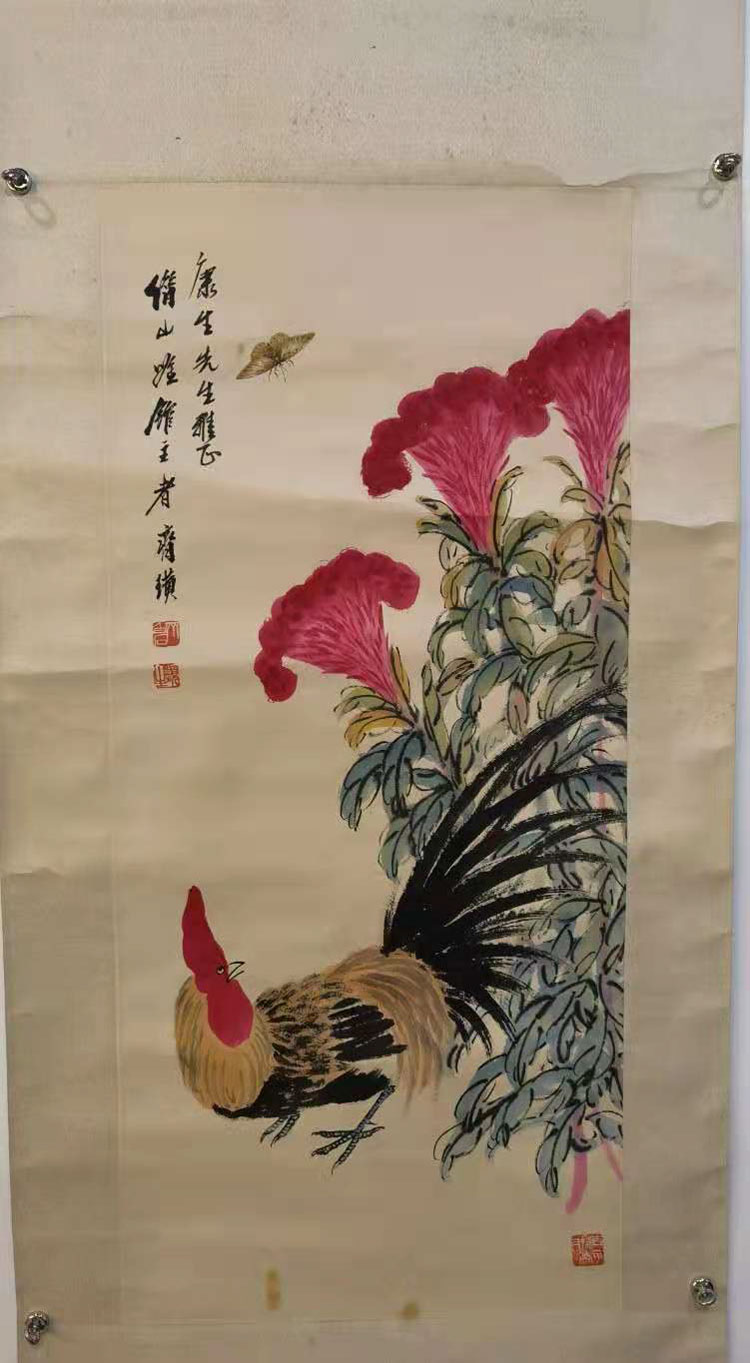 康生先生雅正
借山吟馆主者齐璜